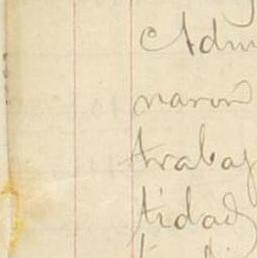 Adm
naron
trabaj
tidad